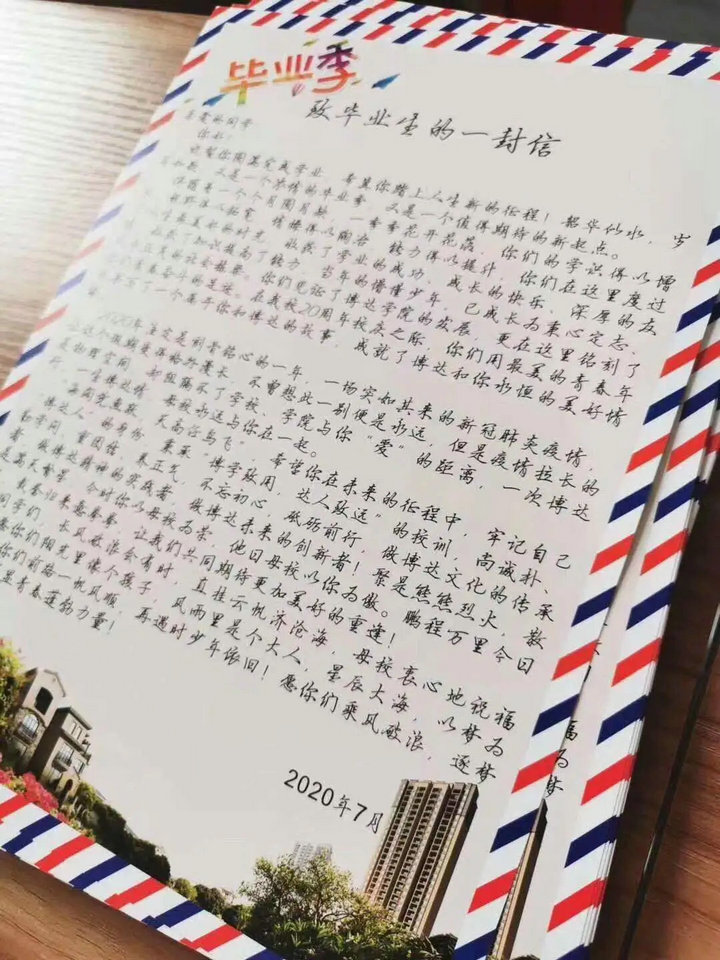 毕业季
致毕业生的一封信
亲爱的同学:
你好!
恭贺你圆满完成学业,恭赞你踏上人生新的征程!韶华似水,岁
月如歌,又是一个浓情的毕业季,又是一个值得期待的新起点。
伴随着一个个月圆月缺,一季季花开花落,你们的学识得以增
视野得以拓宽,情操得以陶冶,能力得以提升。你们在这里度过
美好的时光,收获了学业的成功、成长的快乐、深厚的友
了知识提高了能力,当年的懵懂少年,已成长为秉心定志、
的社会栋梁。你们见证了博达学院的发展,更在这里铭刻了
奋斗的足迹。在我校20周年校庆之际,你们用最美的青春年
写了一个属于你和博达的故事,成就了博达和你永恒的美好情
2020年注定是刻骨铭心的一年,一场突如其来的新冠肺炎疫情,
这个假期变得格外漫长,不曾想此一别便是永远,但是疫情拉长的
是物理空间,却阻隔不了学校、学院与你“爱”的距离,一次博达
行,一生博达情,母校永远与你在一起。
海阔凭鱼跃,天高任鸟飞”,希望你在未来的征程中,牢记自己
博达人”的身份,秉承“博学致用,达人致远”的校训,尚诚朴、
勤学问、重团结、养正气,不忘初心,砥砺前行,做博达文化的传承
者,做博达精神的实践者,做博达未来的创新者!聚是熊熊烈火,散
是满天繁星,今时你以母校为荣,他日母校以你为傲。鹏程万里今日
去,载誉归来意春举,让我们共同期待更加美好的重逢!
同学们,长风破浪会有时,直挂云帆济沧海,母校衷心地祝福
愿你们阳光里像个孩子,风雨里是个大人,星辰大海,以梦为
你们前路一帆风顺,再遇时少年依旧!愿你们乘风破浪,逐梦
显青春蓬勃力量!
2020年7月
福
为
梦